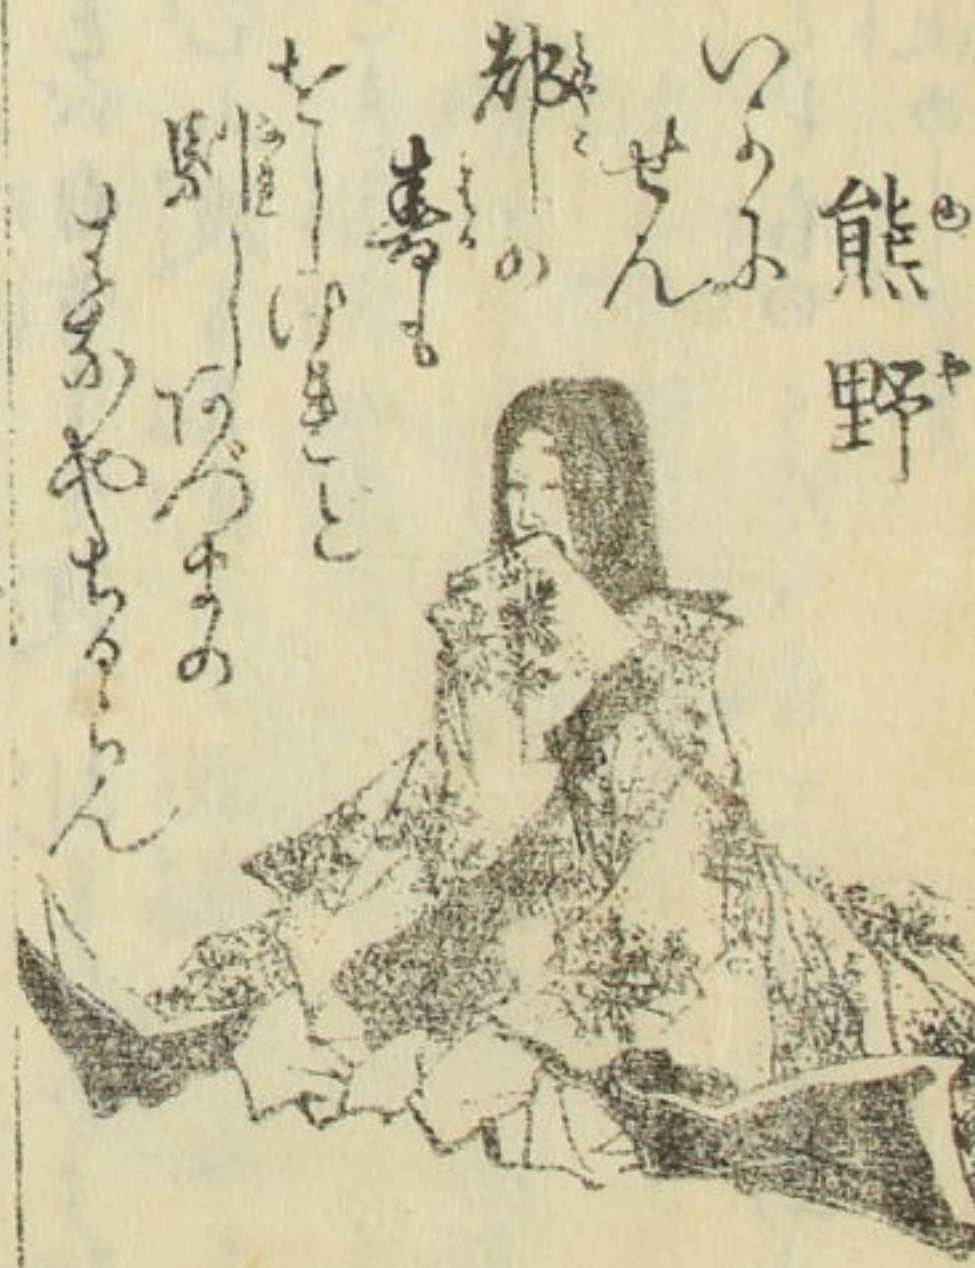 熊野
いかに
せん
都の
春も
をしけれど
馴しあづまの
はなやちるらん